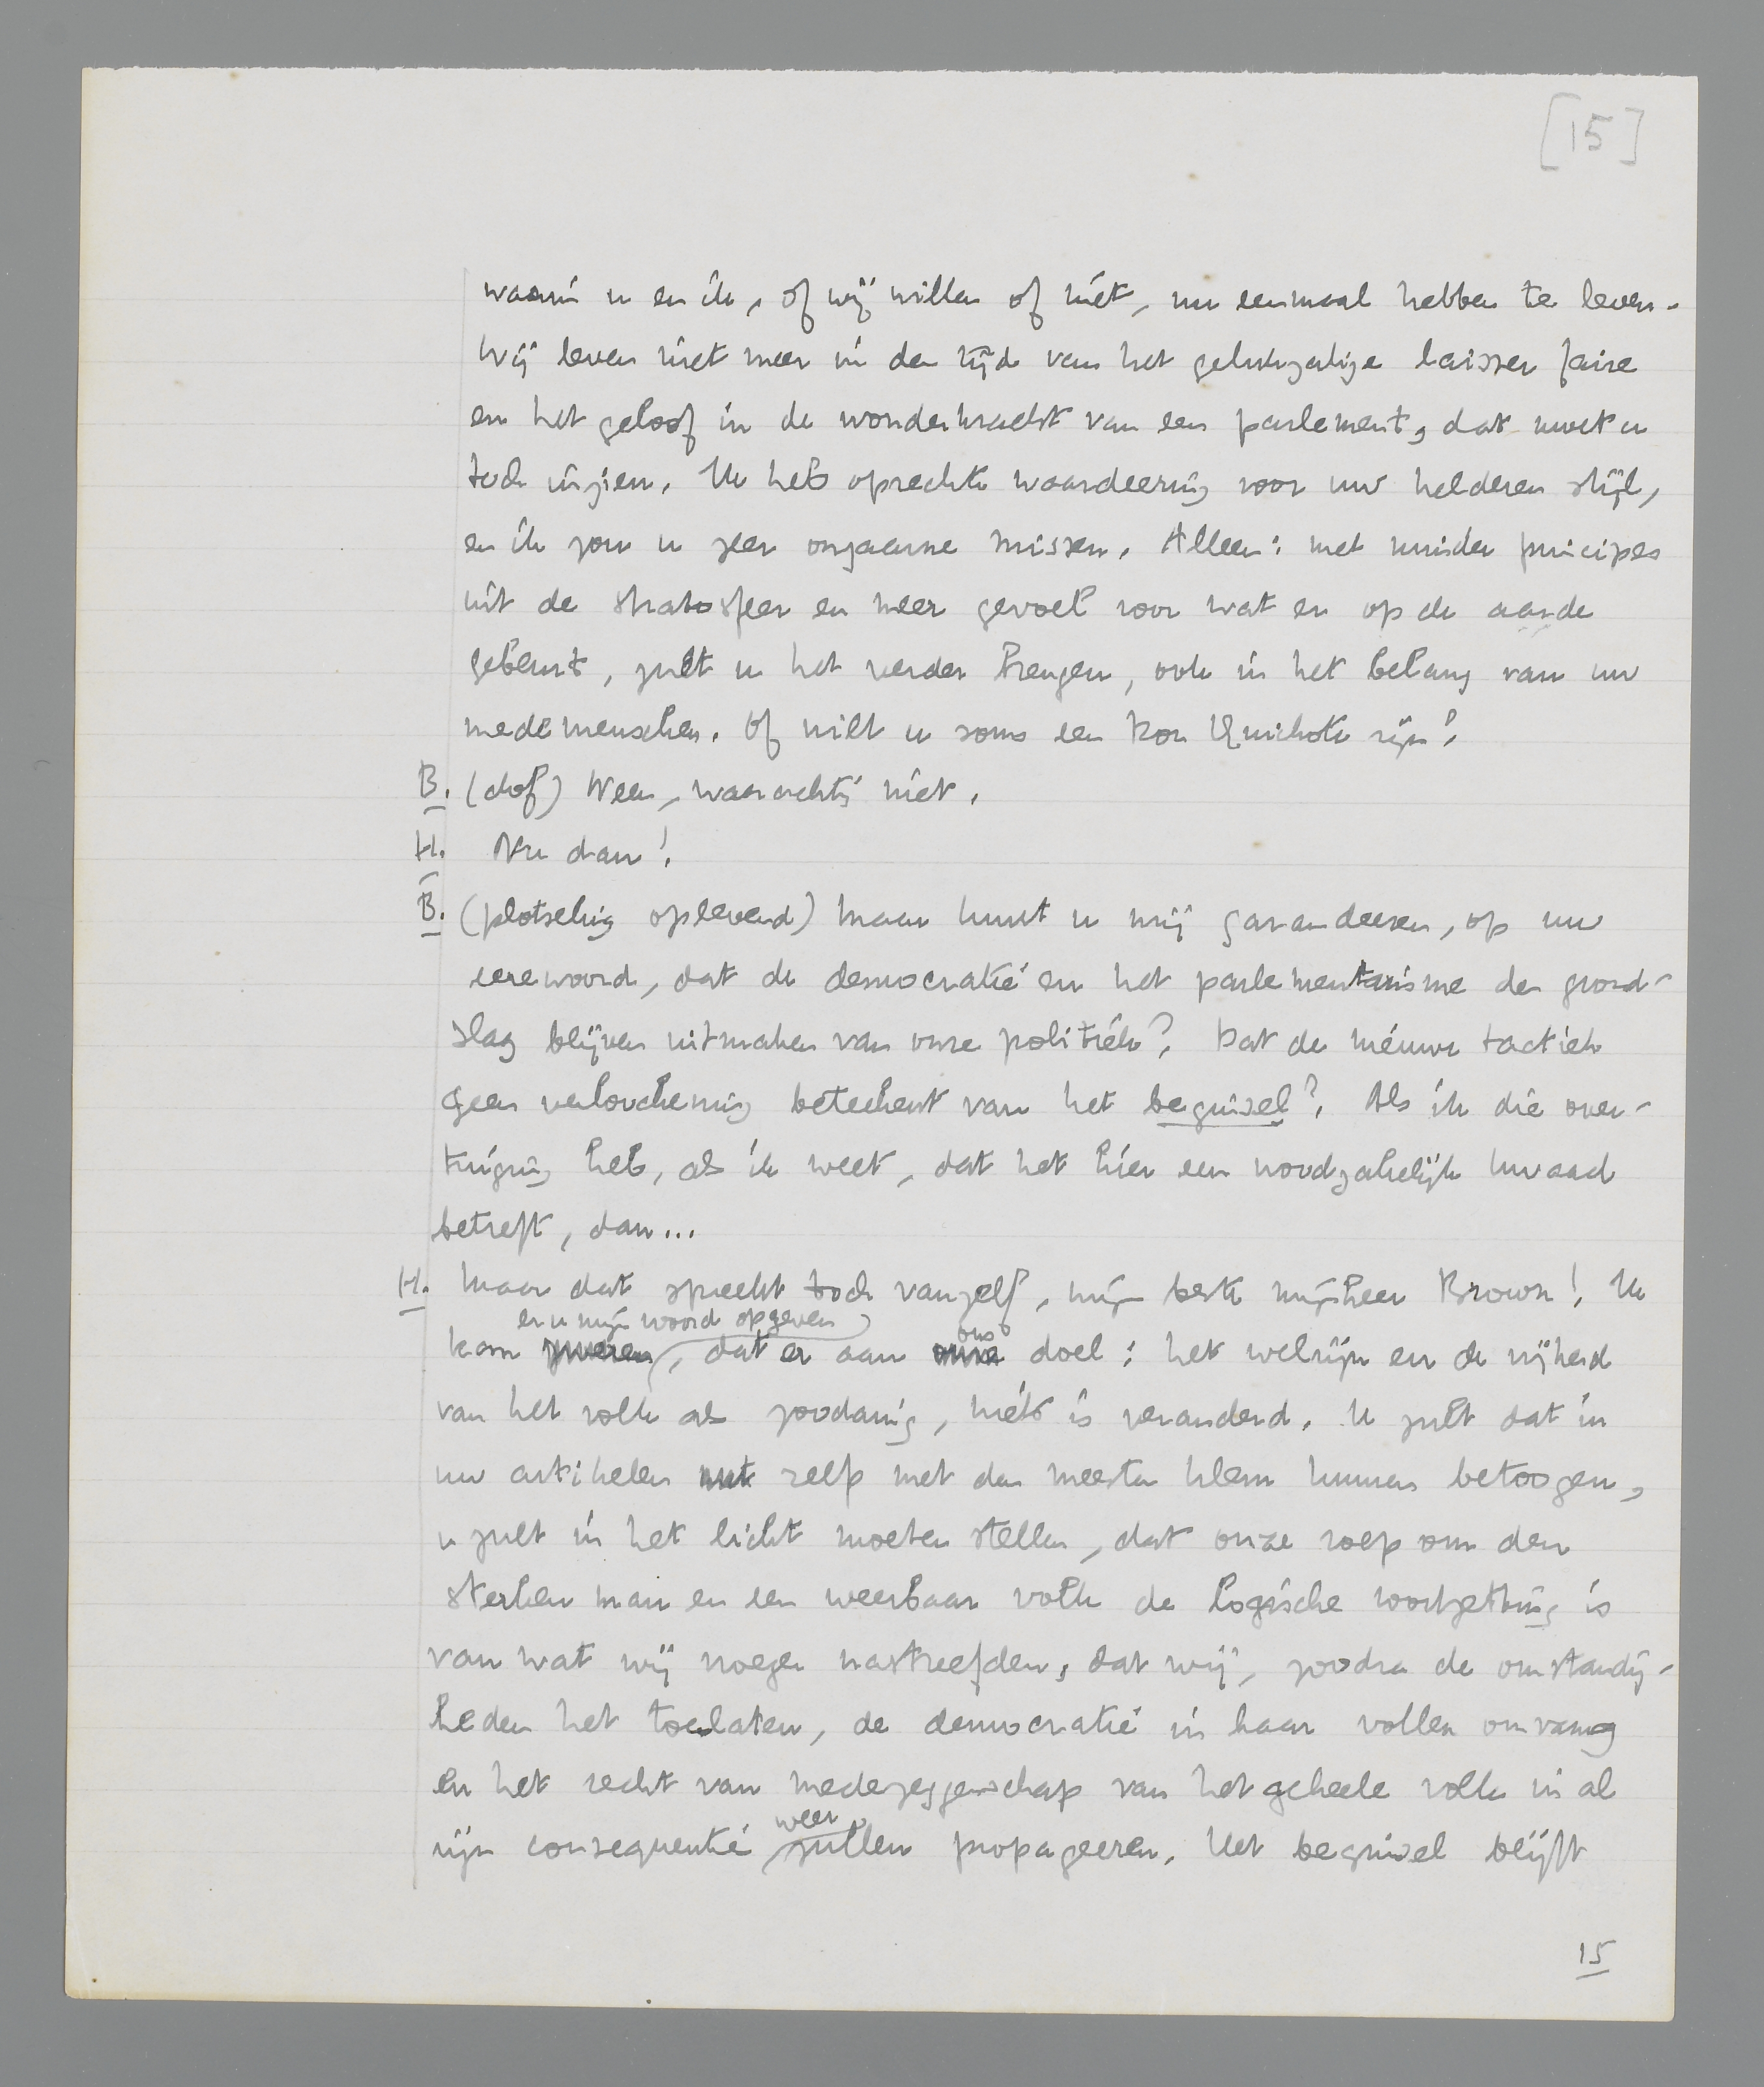 [15]
waarin u en ik, of wij willen of niet, nu eenmaal hebben te leven.
Wij leven niet meer in den tijd van het gelukzalige laisser faire
en het geloof in de wonderkracht van een parlement, dat moet u
toch inzien. Ik heb oprechte waardeering voor uw helderen stijl,
en ik zou u zeer ongaarne missen. Alleen: met minder principes
uit de stratosfeer en meer gevoel voor wat er op de aarde
gebeurt, zult u het verder brengen, ook in het belang van uw
medemenschen. Of wilt u soms een Don Quichote zijn?
B. (dof) Neen, waarachtig niet.
H. Nu dan!
B. (plotseling oplevend) Maar kunt u mij garandeeren, op uw
eerewoord, dat de democratie en het parlementarisme den grond-
slag blijven uitmaken van onze politiek? Dat de nieuwe tactiek
geen verloochening beteekent van het beginsel? Als ik die over-
tuiging heb, als ik weet, dat het hier een noodzakelijk kwaad
betreft, dan...
H. Maar dat spreekt toch vanzelf, mijn beste mijnheer Brown! Ik
er u mijn woord op geven
ons
kan zweren, dat er aan onze doel: het welzijn en de vrijheid
van het volk als zoodanig, niets is veranderd. U zult dat in
uw artikelen met zelf met den meesten klem kunnen betoogen,
u zult in het licht moeten stellen, dat onze roep om den
sterken man en een weerbaar volk de logische voortzetting is
van wat wij vroeger nastreefden, dat wij, zoodra de omstandig-
heden het toelaten, de democratie in haar vollen omvang
en het recht van medezeggenschap van het geheele volk in al
weer
zijn consequentie zullen propageeren. Het beginsel blijft
15